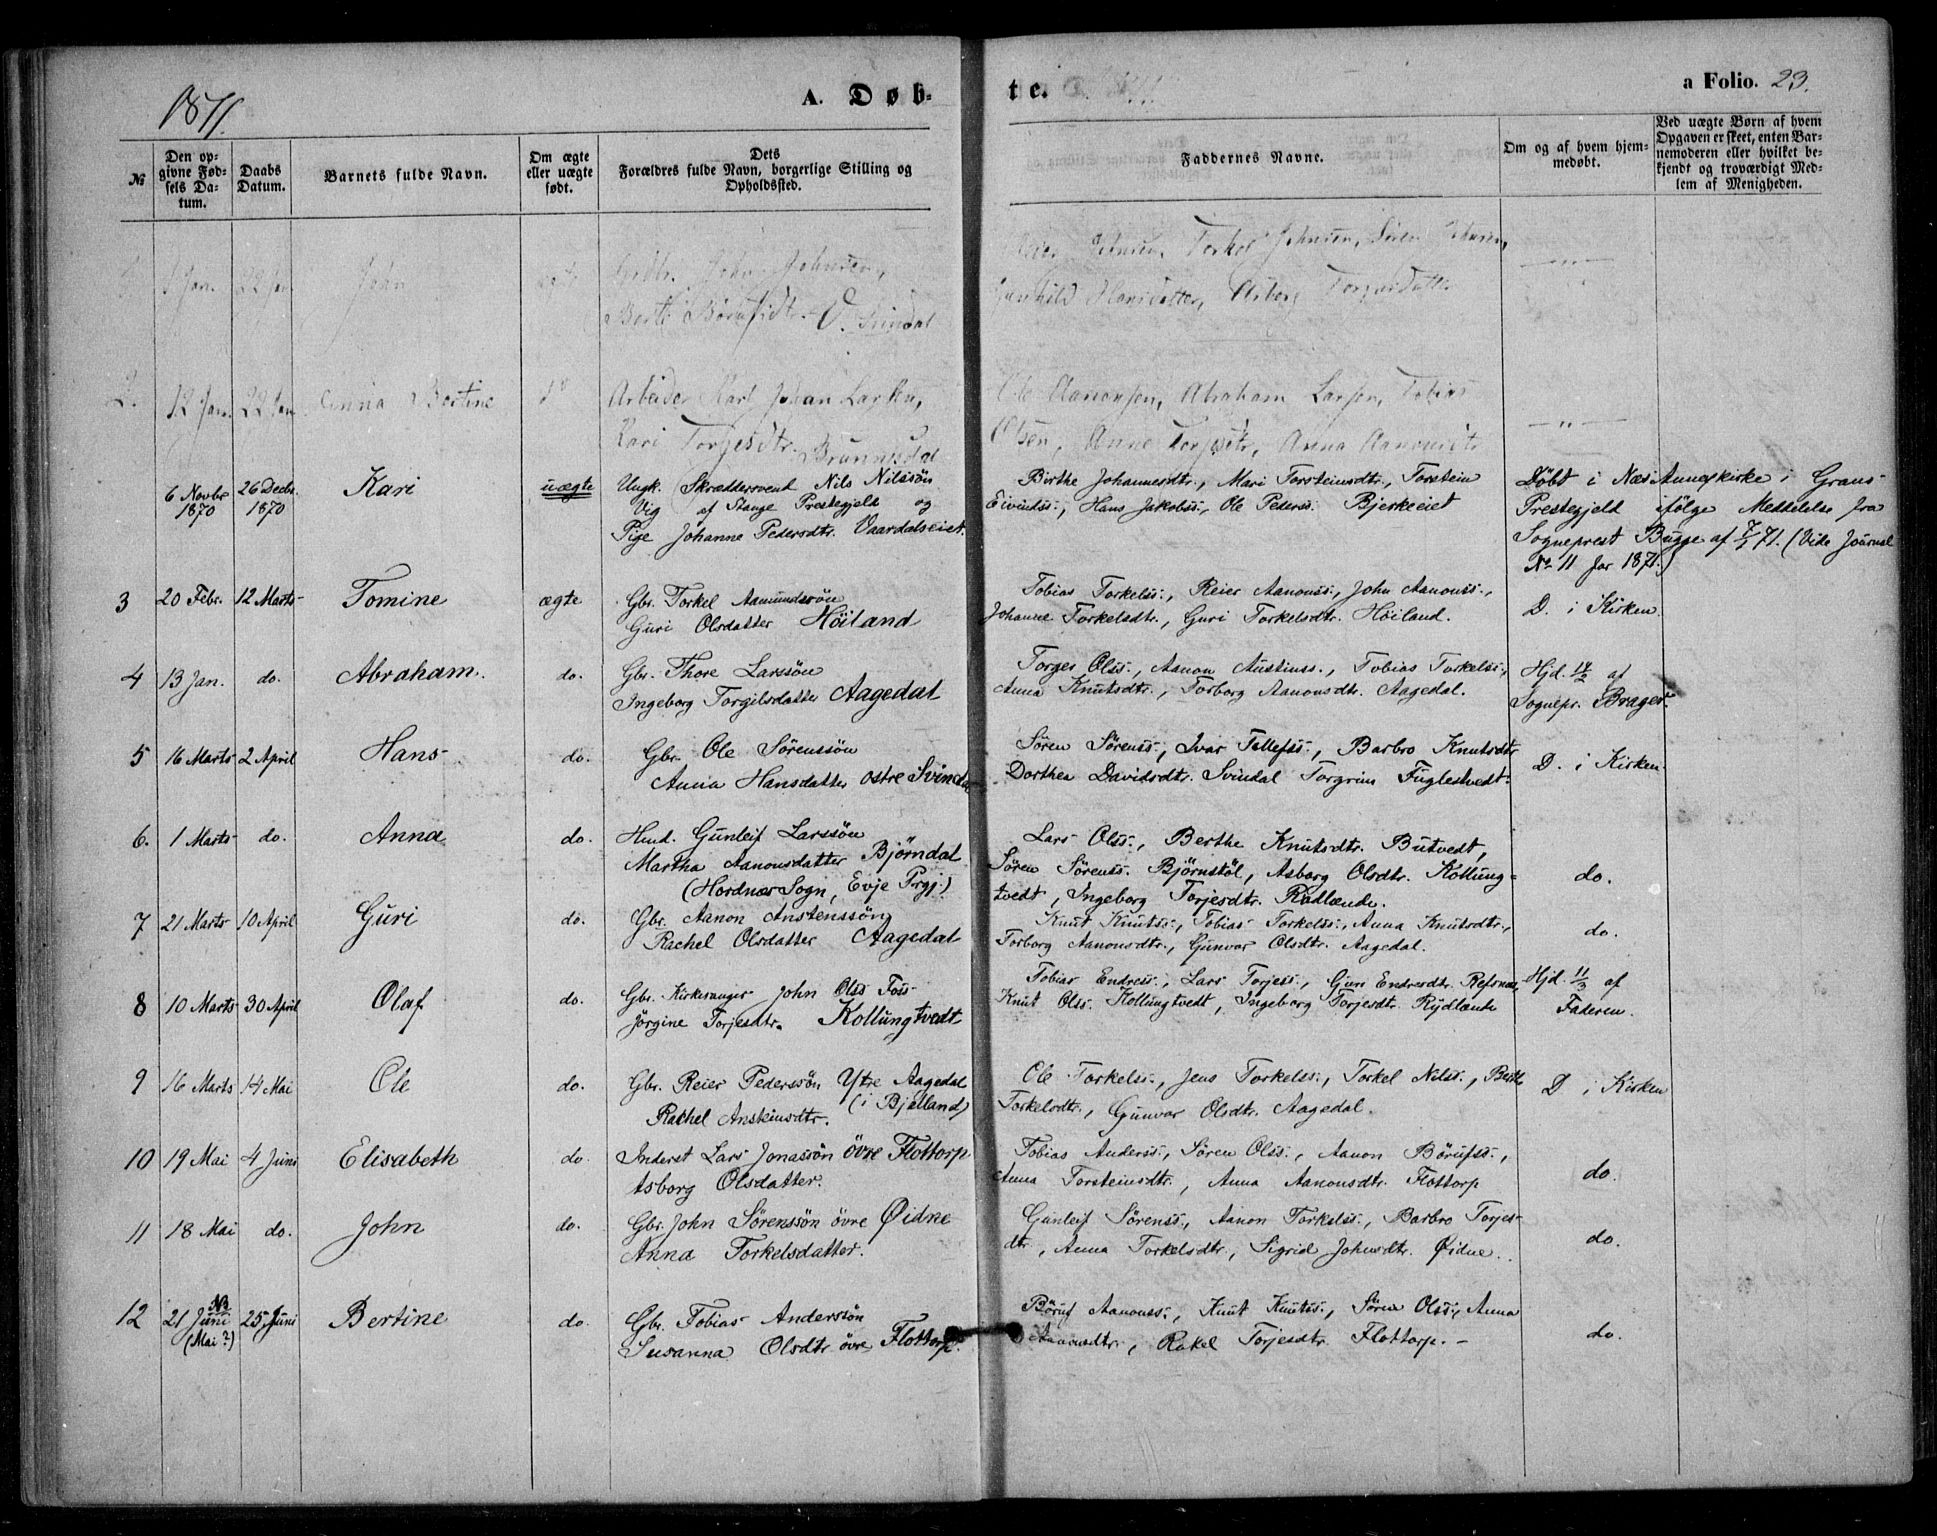 1871.
A. Døb-
te.
a Folio. 23.
№
Den opgivne Fødsels Datum.
Daabs Datum.
Barnets fulde Navn.
Om ægte eller uægte født.
Dets Forældres fulde Navn, borgerlige Stilling og Opholdssted.
Faddernes Navne.
Om og af hvem hjemmedøbt.
Ved uægte Børn af hvem Opgaven er skeet, enten Barnemoderen eller hvilket bekjendt og troværdigt Medlem af Menigheden.
1 Jan. 22 Jan. John
John Johnsen, Torkel Johnsen, Søren Johnsen,
Gunhild Hansdatter, Asborg
Svindal
2. 12 Jan. 22 Jan. Anna Bertine do Arbeider Karl Johan Larsen, Ole Aanonsen, Abraham Larsen, Tobias
Kari Torjesdtr. Brunnesdal Olsen, Anne Torjesdtr, Anna Aanonsdtr
6 Novbr 1870 26 Decbr. 1870 Kari uægte Ungk. Skræddersvend Nils Nilssön Birthe Johannesdtr., Mari Torsteinsdtr., Torstein Döbt i Næs Annexkirke i Grans
Vig af Stange Prestegjeld og Eivindss., Hans Jakobss., Ole Pederss. Bjerkeeiet Prestegjeld ifölge Meddelelse fra
Pige Johanne Pedersdtr. Vaardalseiet. Sogneprest Bugge af 7/1 71. (Vide Journal
No 11 for 1871.)
3 20 Febr. 12 Marts Tomine ægte Gbr. Torkel Aamundssön Tobias Torkelss., Reier Aanonss., John Aanonss.,
Guri Olsdatter Höiland Johanne Torkelsdtr., Guri Torkelsdtr. Höiland. D. i Kirken.
4 13 Jan. do. Abraham. do. Gbr. Thore Larssön Torger Olss., Aanon Austinss., Tobias Torkelss., Hjd. 14/2 af
Ingeborg Torgilsdatter Aagedal Anna Knutsdtr., Torborg Aanonsdtr. Aagedal. Sognepr. Brager.
5 16 Marts 2 April Hans do. Gbr. Ole Sörenssön Sören Sörenss., Ivar Tellefss., Barbro Knutsdtr
Anna Hansdatter östre Svindal Dorthea Davidsdtr. Svindal Torgrim Fuglestvedt. D. i Kirken.
6. 1 Marts do. Anna do. Hmd. Gunleif Larssön Lars Olss., Berthe Knutsdtr. Butvedt,
Martha Aanonsdatter Björndal Sören Sörenss. Björnstöl, Asborg Olsdtr. Kollung- do.
(Hordnæs Sogn, Evje Prgj.) tvedt, Ingeborg Torjesdtr. Rödlande.
7 21 Marts 10 April Guri do. Gbr. Aanon Anstenssöng Knut Knutss., Tobias Torkelss., Anna Knutsdtr.,
Rachel Olsdatter Aagedal Torborg Aanonsdtr., Gunvor Olsdtr. Aagedal. do.
8 10 Marts 30 April Olaf do. Gbr. Kirkesanger John Olss Foss Tobias Endress., Lars Torjess., Guri Endresdtr. Refsnæs, Hjd. 11/3 af
Jörgine Torjesdtr. Kollungtvedt Knut Olss. Kollungtvedt, Ingeborg Torjesdtr. Rydlande Faderen.
9 16 Marts 14 Mai Ole do. Gbr. Reier Pederssön Ytre Aagedal Ole Torkelss., Jens Torkelss., Torkel Nilss., Berthe D i Kirken
(i Bjelland)
Rachel Ansteinsdtr. Torkelsdtr., Gunvor Olsdtr. Aagedal.
10 19 Mai 4 Juni Elisabeth do. Inderst Lars Jonassön övre Flottorp Tobias Anderss., Sören Olss., Aanon Börufss.,
Asborg Olsdatter. Anna Torsteinsdtr., Anna Aanonsdtr. Flottorp do.
11 18 Mai do. John do. Gbr. John Sörenssön övre Øidne Gunleif Sörenss., Aanon Torkelss., Barbro Torjes-
Anna Torkelsdatter. dtr., Anna Torkelsdtr, Sigrid Johnsdtr. Øidne. do.
12 21 Juni NB (Mai?) 25 Juni Bertine do. Gbr. Tobias Anderssön Böruf Aanonss., Knut Knutss., Sören Olss., Anna
Susanna Olsdtr övre Flottorp. Aanonsdtr., Rakel Torjesdtr. Flottorp. – do.